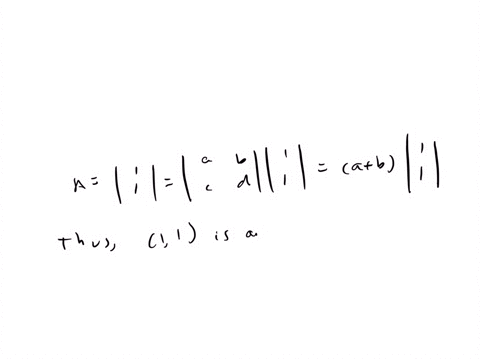 A = | 1 1 | = | a b c d | | 1 1 | = (a+b) | 1 1 |
thus, (1,1) is a